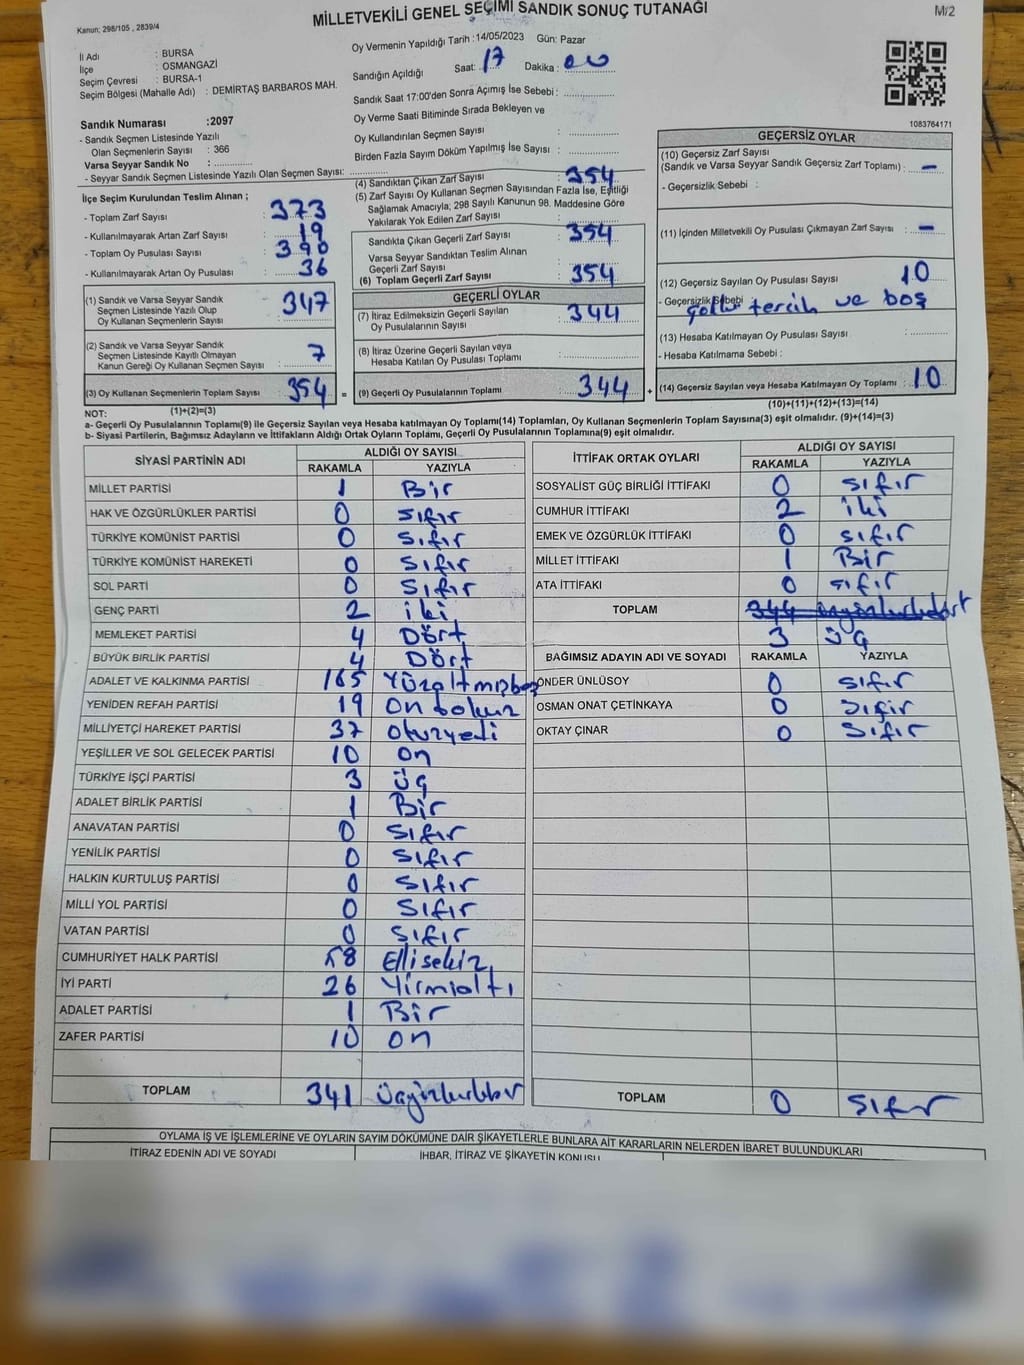 MİLLETVEKİLİ GENEL SEÇİMİ SANDIK SONUÇ TUTANAĞI
M/2
Kanun; 298/105 , 2839/4
İl Adı : BURSA
İlçe : OSMANGAZİ
Seçim Çevresi : BURSA-1
Seçim Bölgesi (Mahalle Adı) : DEMİRTAŞ BARBAROS MAH.
Oy Vermenin Yapıldığı Tarih : 14/05/2023 Gün: Pazar
Sandığın Açıldığı Saat: 17 Dakika : 00
Sandık Saat 17:00'den Sonra Açımış İse Sebebi :
Oy Verme Saati Bitiminde Sırada Bekleyen ve
Oy Kullandırılan Seçmen Sayısı :
Birden Fazla Sayım Döküm Yapılmış İse Sayısı :
1083764171
Sandık Numarası :2097
- Sandık Seçmen Listesinde Yazılı
Olan Seçmenlerin Sayısı : 366
Varsa Seyyar Sandık No :
- Seyyar Sandık Seçmen Listesinde Yazılı Olan Seçmen Sayısı:
İlçe Seçim Kurulundan Teslim Alınan ;
- Toplam Zarf Sayısı : 373
- Kullanılmayarak Artan Zarf Sayısı : 19
- Toplam Oy Pusulası Sayısı : 390
- Kullanılmayarak Artan Oy Pusulası : 36
(1) Sandık ve Varsa Seyyar Sandık
Seçmen Listesinde Yazılı Olup
Oy Kullanan Seçmenlerin Sayısı : 347
(2) Sandık ve Varsa Seyyar Sandık
Seçmen Listesinde Kayıtlı Olmayan
Kanun Gereği Oy Kullanan Seçmen Sayısı : 7
(3) Oy Kullanan Seçmenlerin Toplam Sayısı : 354 =
(1)+(2)=(3)
(4) Sandıktan Çıkan Zarf Sayısı : 354
(5) Zarf Sayısı Oy Kullanan Seçmen Sayısından Fazla İse, Eşitliği
Sağlamak Amacıyla; 298 Sayılı Kanunun 98. Maddesine Göre
Yakılarak Yok Edilen Zarf Sayısı :
Sandıkta Çıkan Geçerli Zarf Sayısı : 354
Varsa Seyyar Sandıktan Teslim Alınan
Geçerli Zarf Sayısı :
(6) Toplam Geçerli Zarf Sayısı : 354
GEÇERLİ OYLAR
(7) İtiraz Edilmeksizin Geçerli Sayılan
Oy Pusulalarının Sayısı : 344
(8) İtiraz Üzerine Geçerli Sayılan veya
Hesaba Katılan Oy Pusulası Toplamı :
(9) Geçerli Oy Pusulalarının Toplamı : 344 +
GEÇERSİZ OYLAR
(10) Geçersiz Zarf Sayısı
(Sandık ve Varsa Seyyar Sandık Geçersiz Zarf Toplamı) : -
- Geçersizlik Sebebi :
(11) İçinden Milletvekili Oy Pusulası Çıkmayan Zarf Sayısı : -
(12) Geçersiz Sayılan Oy Pusulası Sayısı : 10
- Geçersizlik Sebebi tercih ve boş
(13) Hesaba Katılmayan Oy Pusulası Sayısı :
- Hesaba Katılmama Sebebi :
(14) Geçersiz Sayılan veya Hesaba Katılmayan Oy Toplamı : 10
(10)+(11)+(12)+(13)=(14)
NOT:
a- Geçerli Oy Pusulalarının Toplamı(9) ile Geçersiz Sayılan veya Hesaba katılmayan Oy Toplamı(14) Toplamları, Oy Kullanan Seçmenlerin Toplam Sayısına(3) eşit olmalıdır. (9)+(14)=(3)
b- Siyasi Partilerin, Bağımsız Adayların ve İttifakların Aldığı Ortak Oyların Toplamı, Geçerli Oy Pusulalarının Toplamına(9) eşit olmalıdır.
SİYASİ PARTİNİN ADI ALDIĞI OY SAYISI
RAKAMLA YAZIYLA
MİLLET PARTİSİ 1 Bir
HAK VE ÖZGÜRLÜKLER PARTİSİ 0 sıfır
TÜRKİYE KOMÜNİST PARTİSİ 0 Sıfır
TÜRKİYE KOMÜNİST HAREKETİ 0 Sıfır
SOL PARTİ 0 Sıfır
GENÇ PARTİ 2 iki
MEMLEKET PARTİSİ 4 Dört
BÜYÜK BİRLİK PARTİSİ 4 Dört
ADALET VE KALKINMA PARTİSİ 165 Yüzaltmışbeş
YENİDEN REFAH PARTİSİ 19 On dokuz
MİLLİYETÇİ HAREKET PARTİSİ 37 Otuzyedi
YEŞİLLER VE SOL GELECEK PARTİSİ 10 On
TÜRKİYE İŞÇİ PARTİSİ 3 üç
ADALET BİRLİK PARTİSİ 1 Bir
ANAVATAN PARTİSİ 0 Sıfır
YENİLİK PARTİSİ 0 Sıfır
HALKIN KURTULUŞ PARTİSİ 0 Sıfır
MİLLİ YOL PARTİSİ 0 Sıfır
VATAN PARTİSİ 0 Sıfır
CUMHURİYET HALK PARTİSİ 58 Ellisekiz
İYİ PARTİ 26 Yirmialtı
ADALET PARTİSİ 1 Bir
ZAFER PARTİSİ 10 On
TOPLAM 341
İTTİFAK ORTAK OYLARI ALDIĞI OY SAYISI
RAKAMLA YAZIYLA
SOSYALİST GÜÇ BİRLİĞİ İTTİFAKI 0 sıfır
CUMHUR İTTİFAKI 2 iki
EMEK VE ÖZGÜRLÜK İTTİFAKI 0 sıfır
MİLLET İTTİFAKI 1 Bir
ATA İTTİFAKI 0 sıfır
TOPLAM 344
3 üç
BAĞIMSIZ ADAYIN ADI VE SOYADI RAKAMLA YAZIYLA
ÖNDER ÜNLÜSOY 0 sıfır
OSMAN ONAT ÇETİNKAYA 0 Sıfır
OKTAY ÇINAR 0 Sıfır
TOPLAM 0 sıfır
OYLAMA İŞ VE İŞLEMLERİNE VE OYLARIN SAYIM DÖKÜMÜNE DAİR ŞİKAYETLERLE BUNLARA AİT KARARLARIN NELERDEN İBARET BULUNDUKLARI
İTİRAZ EDENİN ADI VE SOYADI İHBAR, İTİRAZ VE ŞİKAYETİN KONUSU